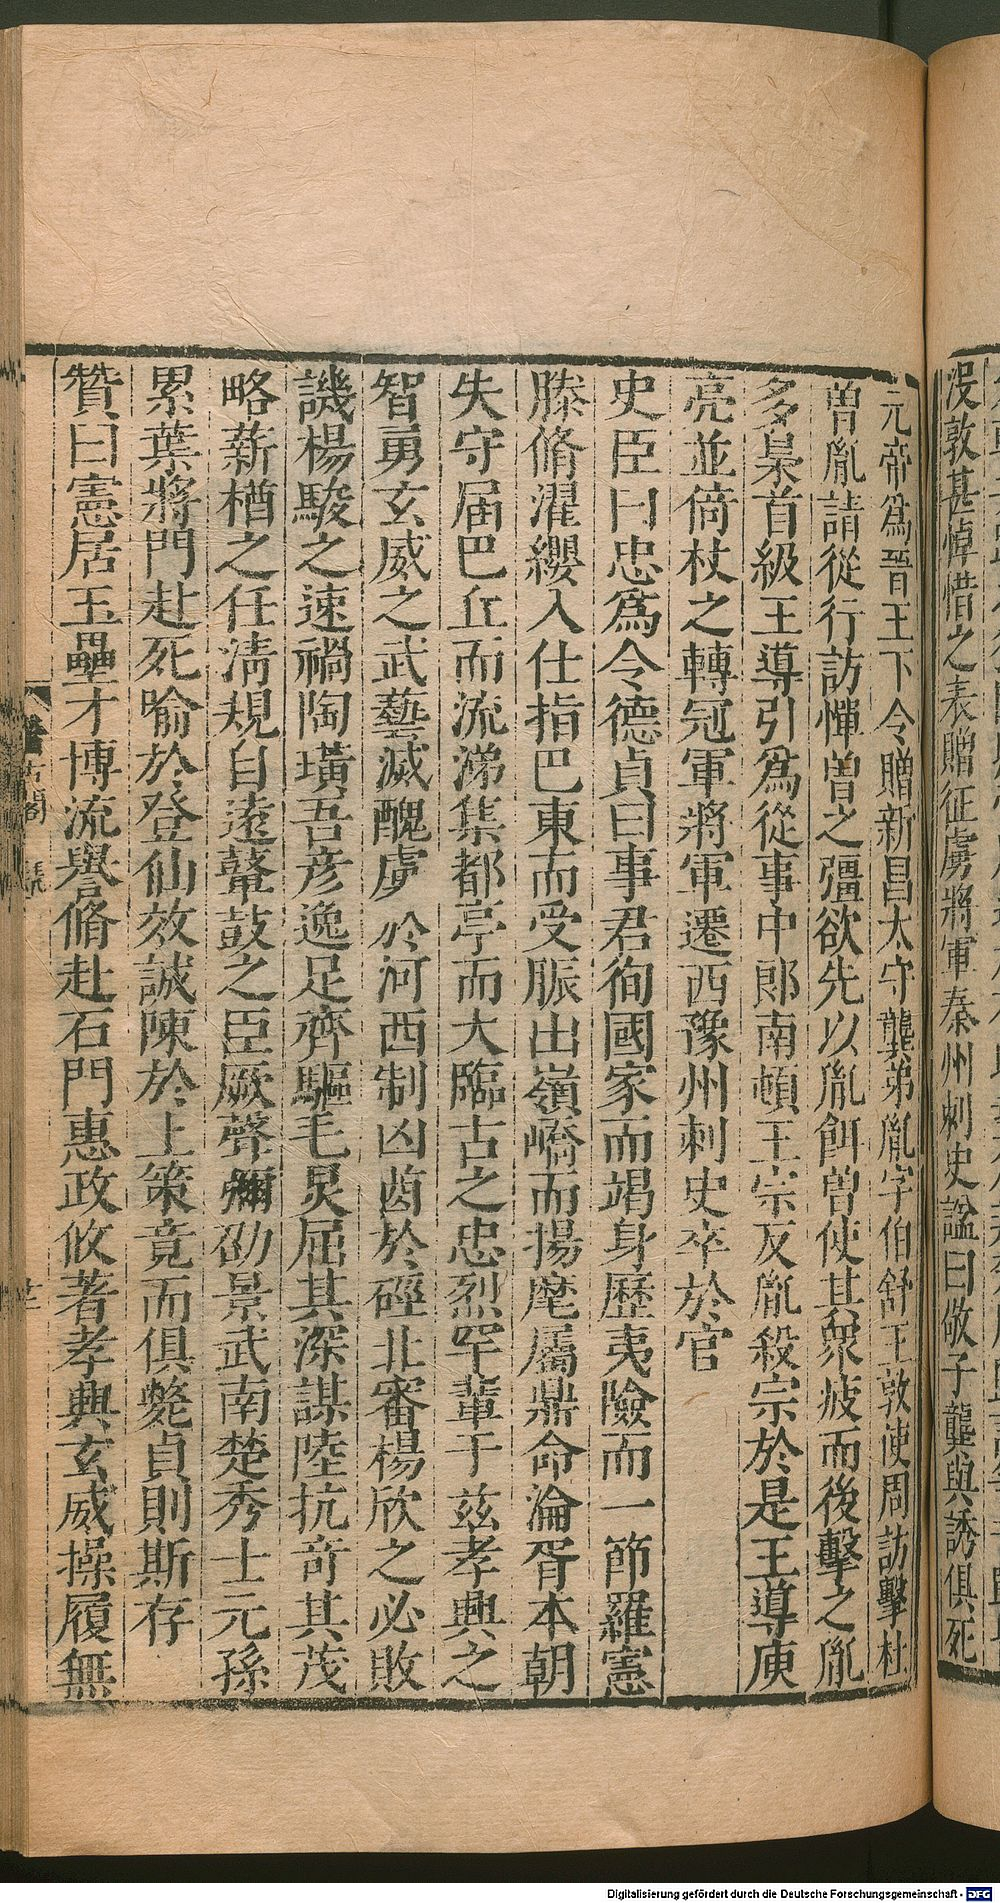 没敦甚悼惜之表贈征虜將軍秦州刺史諡曰敬子龔與誘俱死
元帝爲晉王下令贈新昌太守龔弟胤字伯舒王敦使周訪擊杜
曾胤請從行訪憚曾之彊欲先以胤餌曾使其衆疲而後擊之胤
多梟首級王導引爲從事中郎南頓王宗反胤殺宗於是王導庾
亮並倚杖之轉冠軍將軍遷西豫州刺史卒於官
史臣曰忠爲令德貞曰事君徇國家而竭身歷夷險而一節羅憲
滕脩濯纓入仕指巴東而受脤出嶺嶠而揚麾屬鼎命淪胥本朝
失守届巴丘而流涕集都亭而大臨古之忠烈罕輩于兹孝興之
智勇玄威之武藝滅醜虜於河西制凶酋於硜北審楊欣之必敗
譏楊駿之速禍陶璜吾彦逸足齊驅毛炅屈其深謀陸抗奇其茂
略薪槱之任清規自遠鼙鼓之臣厥聲彌劭景武南楚秀士元孫
累葉將門赴死喻於登仙效誠陳於上策竟而俱斃貞則斯存
贊曰憲居玉壘才博流譽脩赴石門惠政攸著孝興玄威操履無
Digitalisierung gefördert durch die Deutsche Forschungsgemeinschaft - DFG